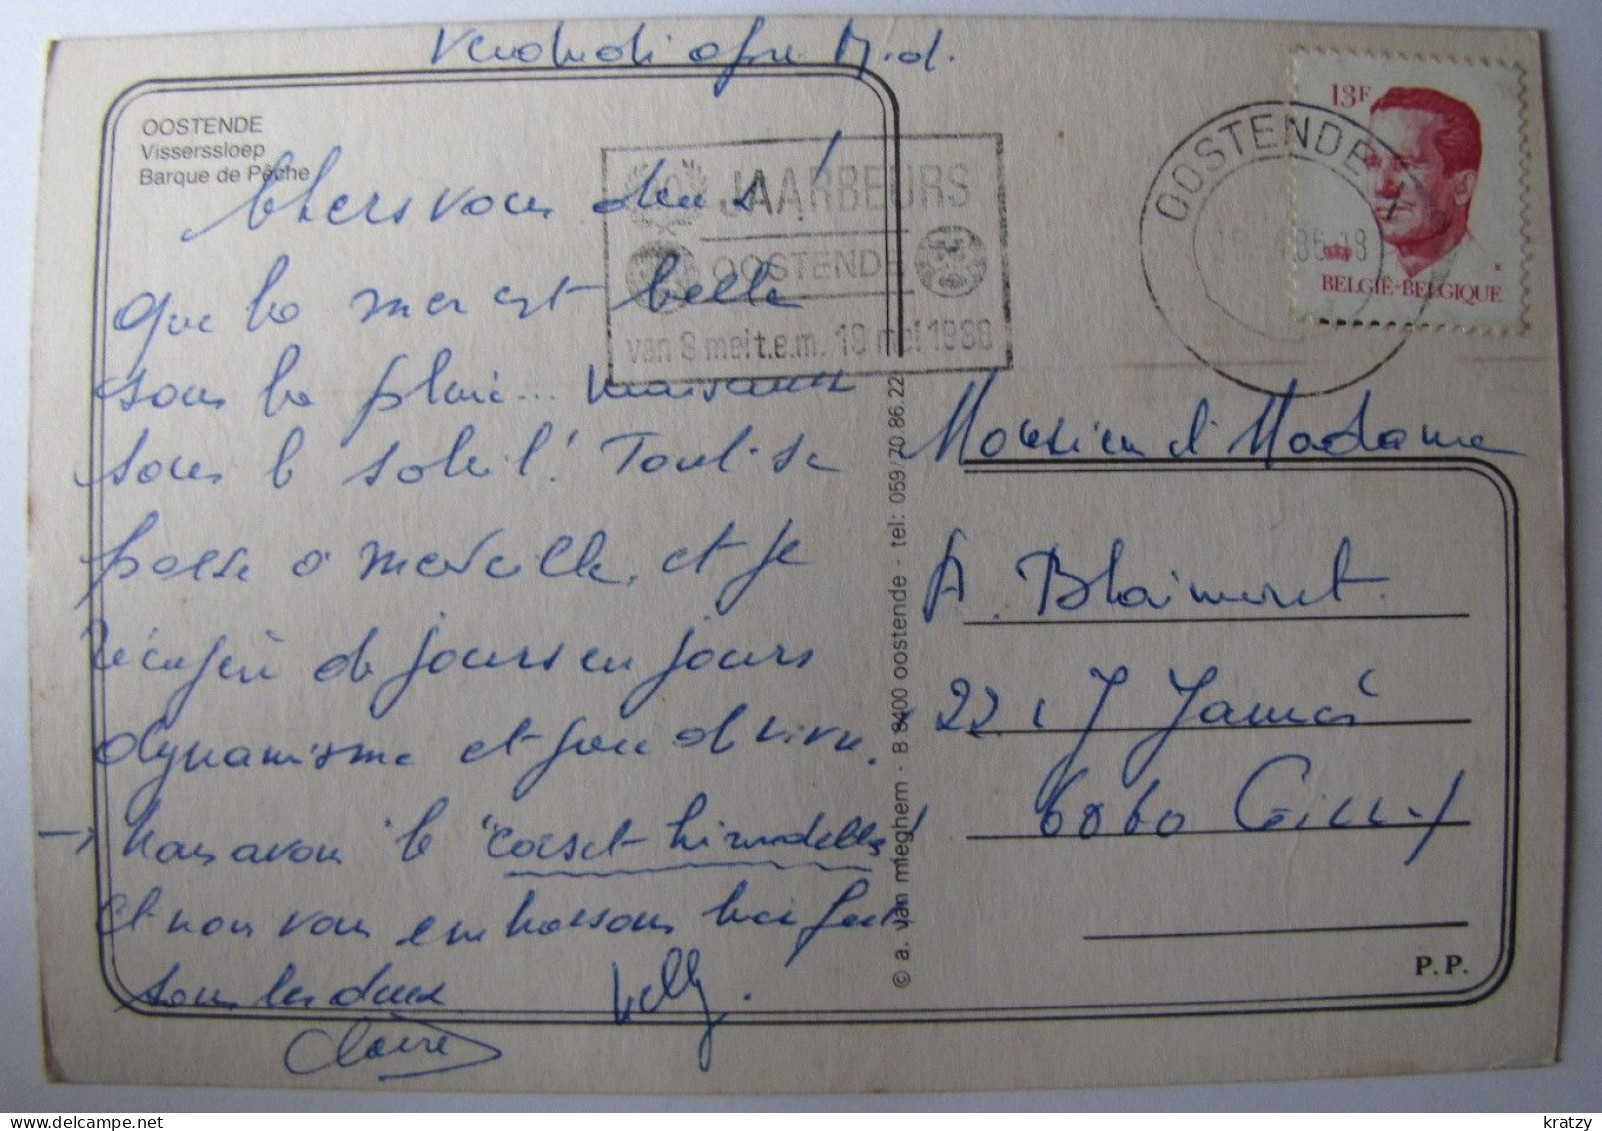 Vendredi apr. M.d.
OOSTENDE
Visserssloep
Barque de Pêche
Chers vous deux !
Que la mer est belle
sous la pluie...
sous le soleil ! Tout se
passe à merveille, et je
récupère de jours en jours
dynamisme et joie de vivre.
→ Nous avons le "corset hirondelles"
et nous vous embrassons bien fort
tous les deux
Willy.
Claire
JAARBEURS
OOSTENDE
van 8 mei t.e.m. 18 mei 1986
OOSTENDE
13F
BELGIË-BELGIQUE
© a. van mieghem - B.8400 oostende - tel: 059/70.86.22
Monsieur et Madame
A. Blaimont
22 r J Jamé
6060 Gilly
P.P.
kratzy
delcampe.net